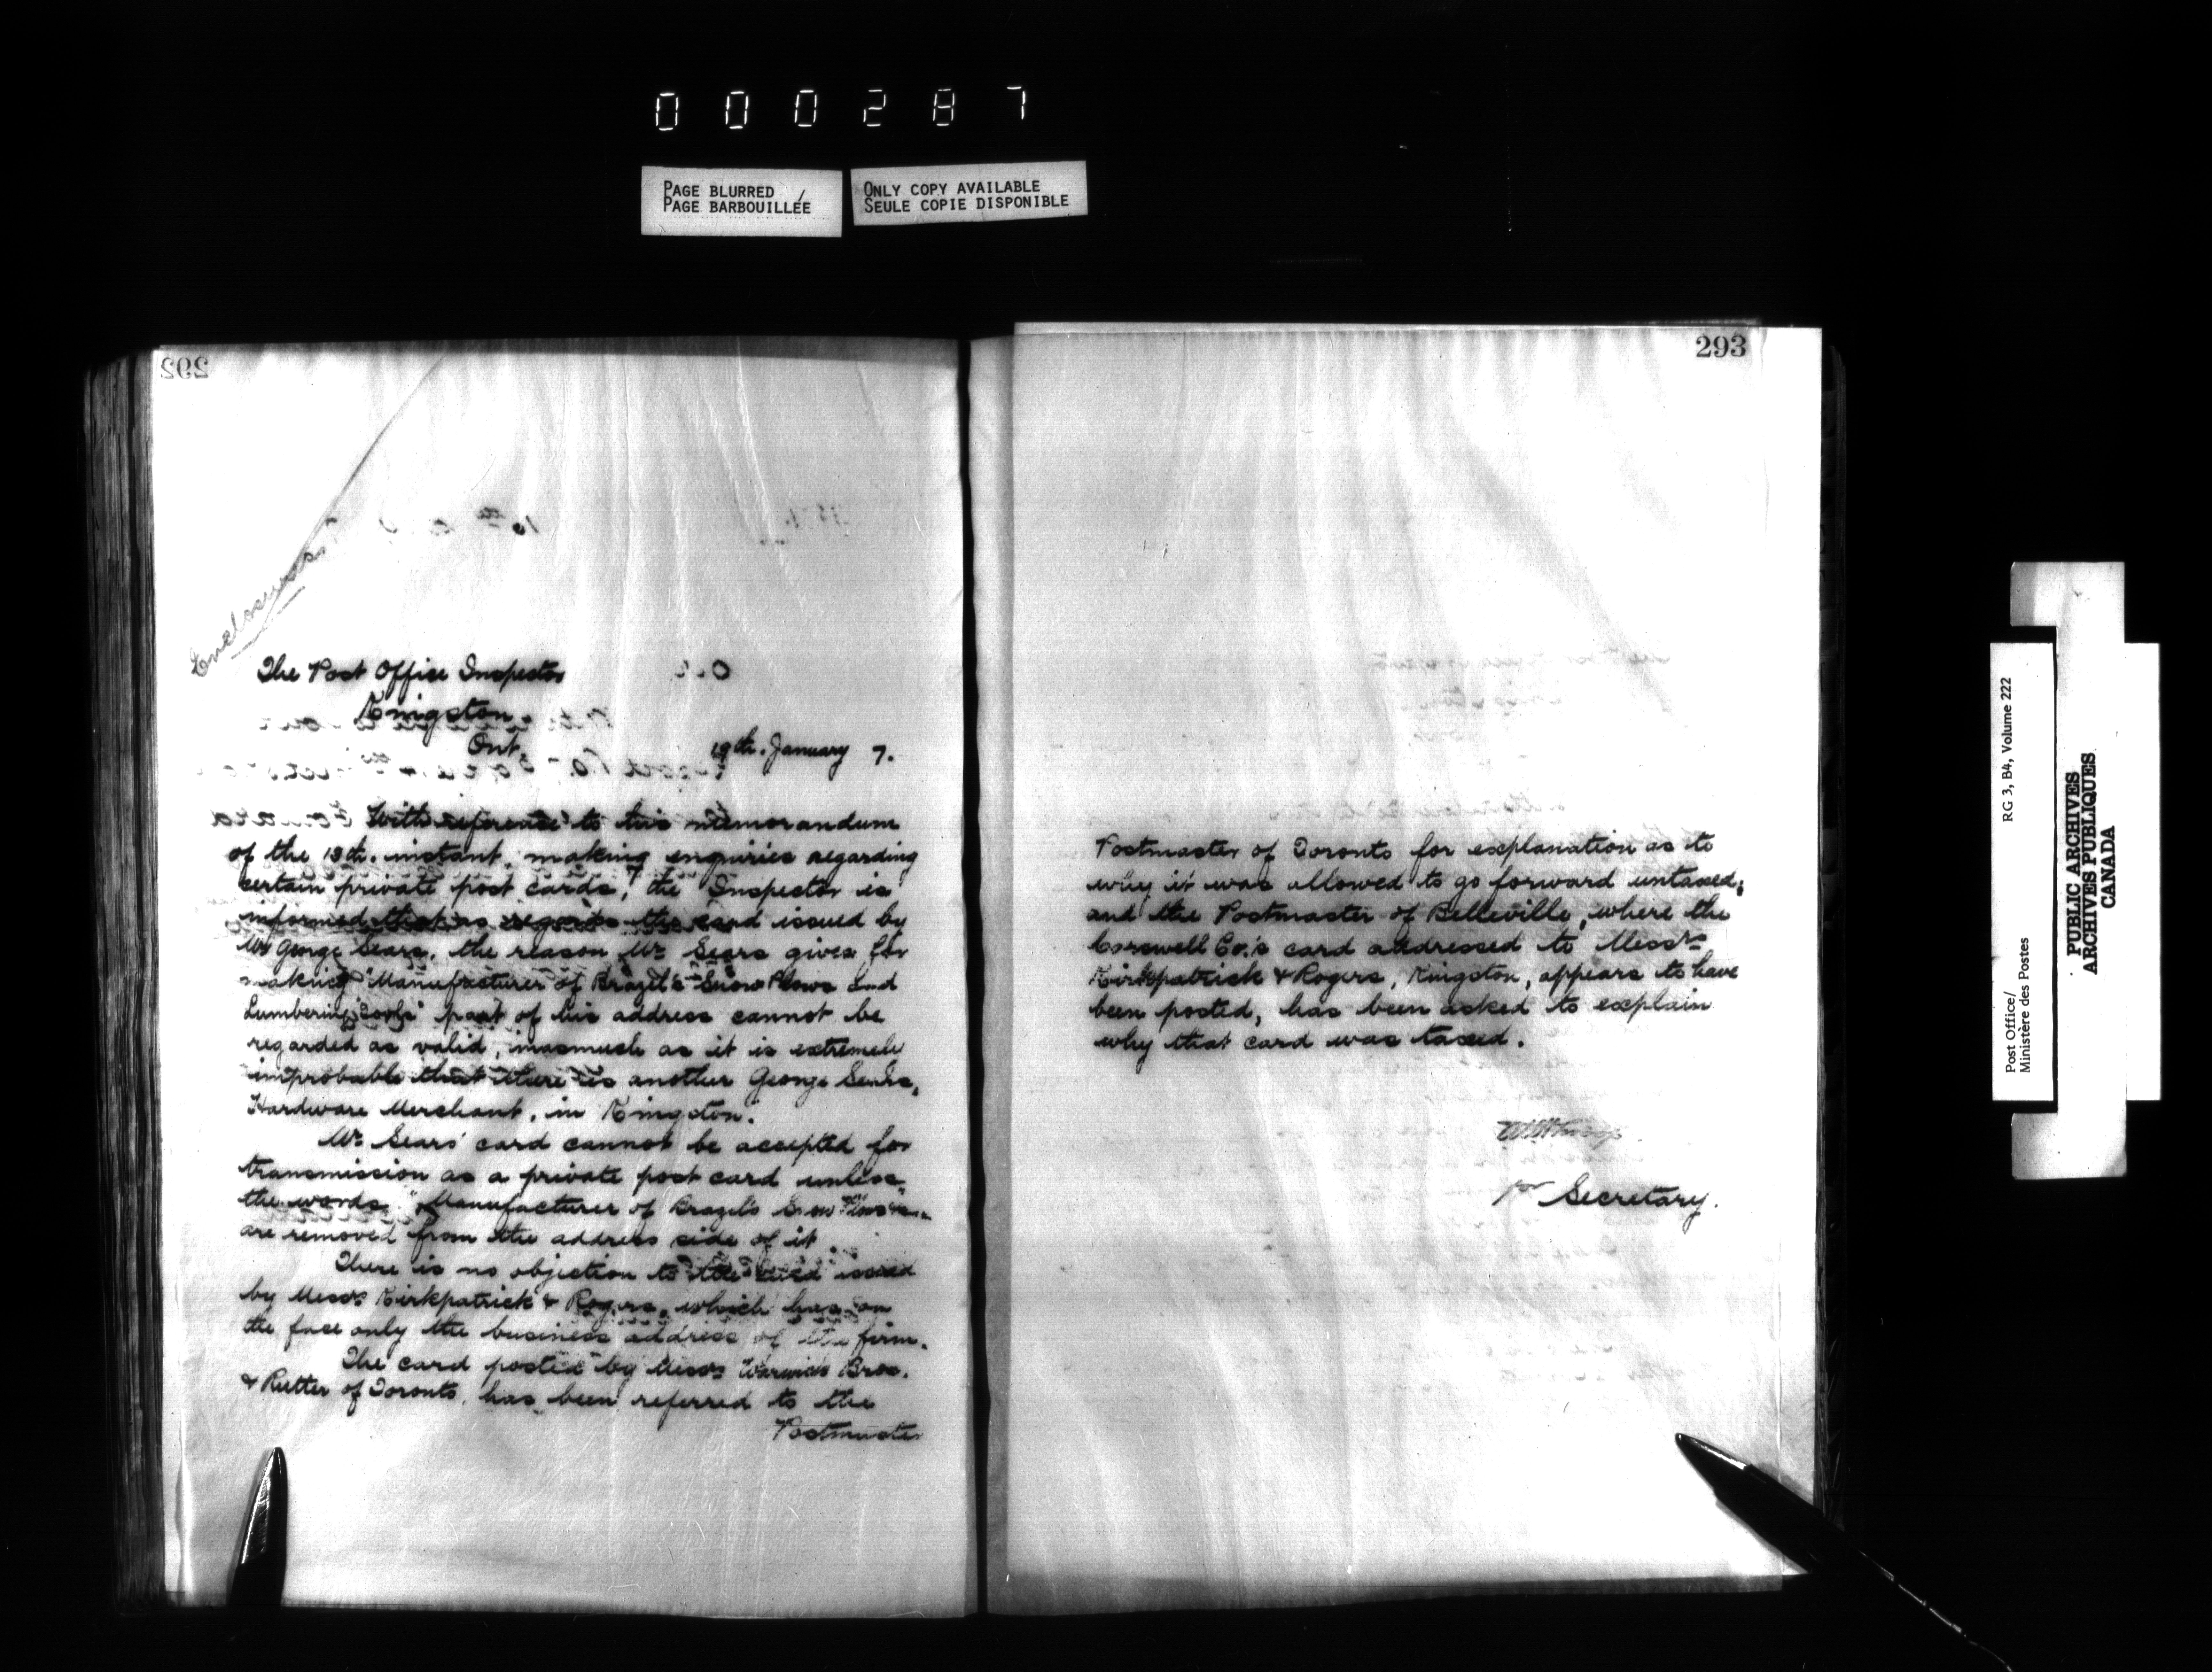 000287
PAGE BLURRED
PAGE BARBOUILLÉE
ONLY COPY AVAILABLE
SEULE COPIE DISPONIBLE
292
Enclosures
The Post Office Inspector
Kingston.
Ont.
19th. January 7.
With reference to his memorandum
of the 18th. instant, making enquiries regarding
certain private post cards, the Inspector is
informed that as regards the card issued by
Mr George Sears, the reason Mr Sears gives for
making "Manufacturer of Brazil's Snow Plows and
Lumbering Tools" part of his address cannot be
regarded as valid, inasmuch as it is extremely
improbable that there is another George Sears,
Hardware Merchant, in Kingston.
Mr Sears' card cannot be accepted for
transmission as a private post card unless
the words "Manufacturer of Brazil's Snow Plows
are removed from the address side of it.
There is no objection to the card issued
by Messrs Kirkpatrick & Rogers, which has on
the face only the business address of the firm.
The card posted by Messrs Warwick Bros.
& Rutter of Toronto, has been referred to the
Postmaster
293
Postmaster of Toronto for explanation as to
why it was allowed to go forward untaxed;
and the Postmaster of Belleville, where the
Corswell Co.'s card addressed to Messrs
Kirkpatrick & Rogers, Kingston, appears to have
been posted, has been asked to explain
why that card was taxed.
for Secretary.
Post Office/
Ministère des Postes
RG 3, B4, Volume 222
PUBLIC ARCHIVES
ARCHIVES PUBLIQUES
CANADA